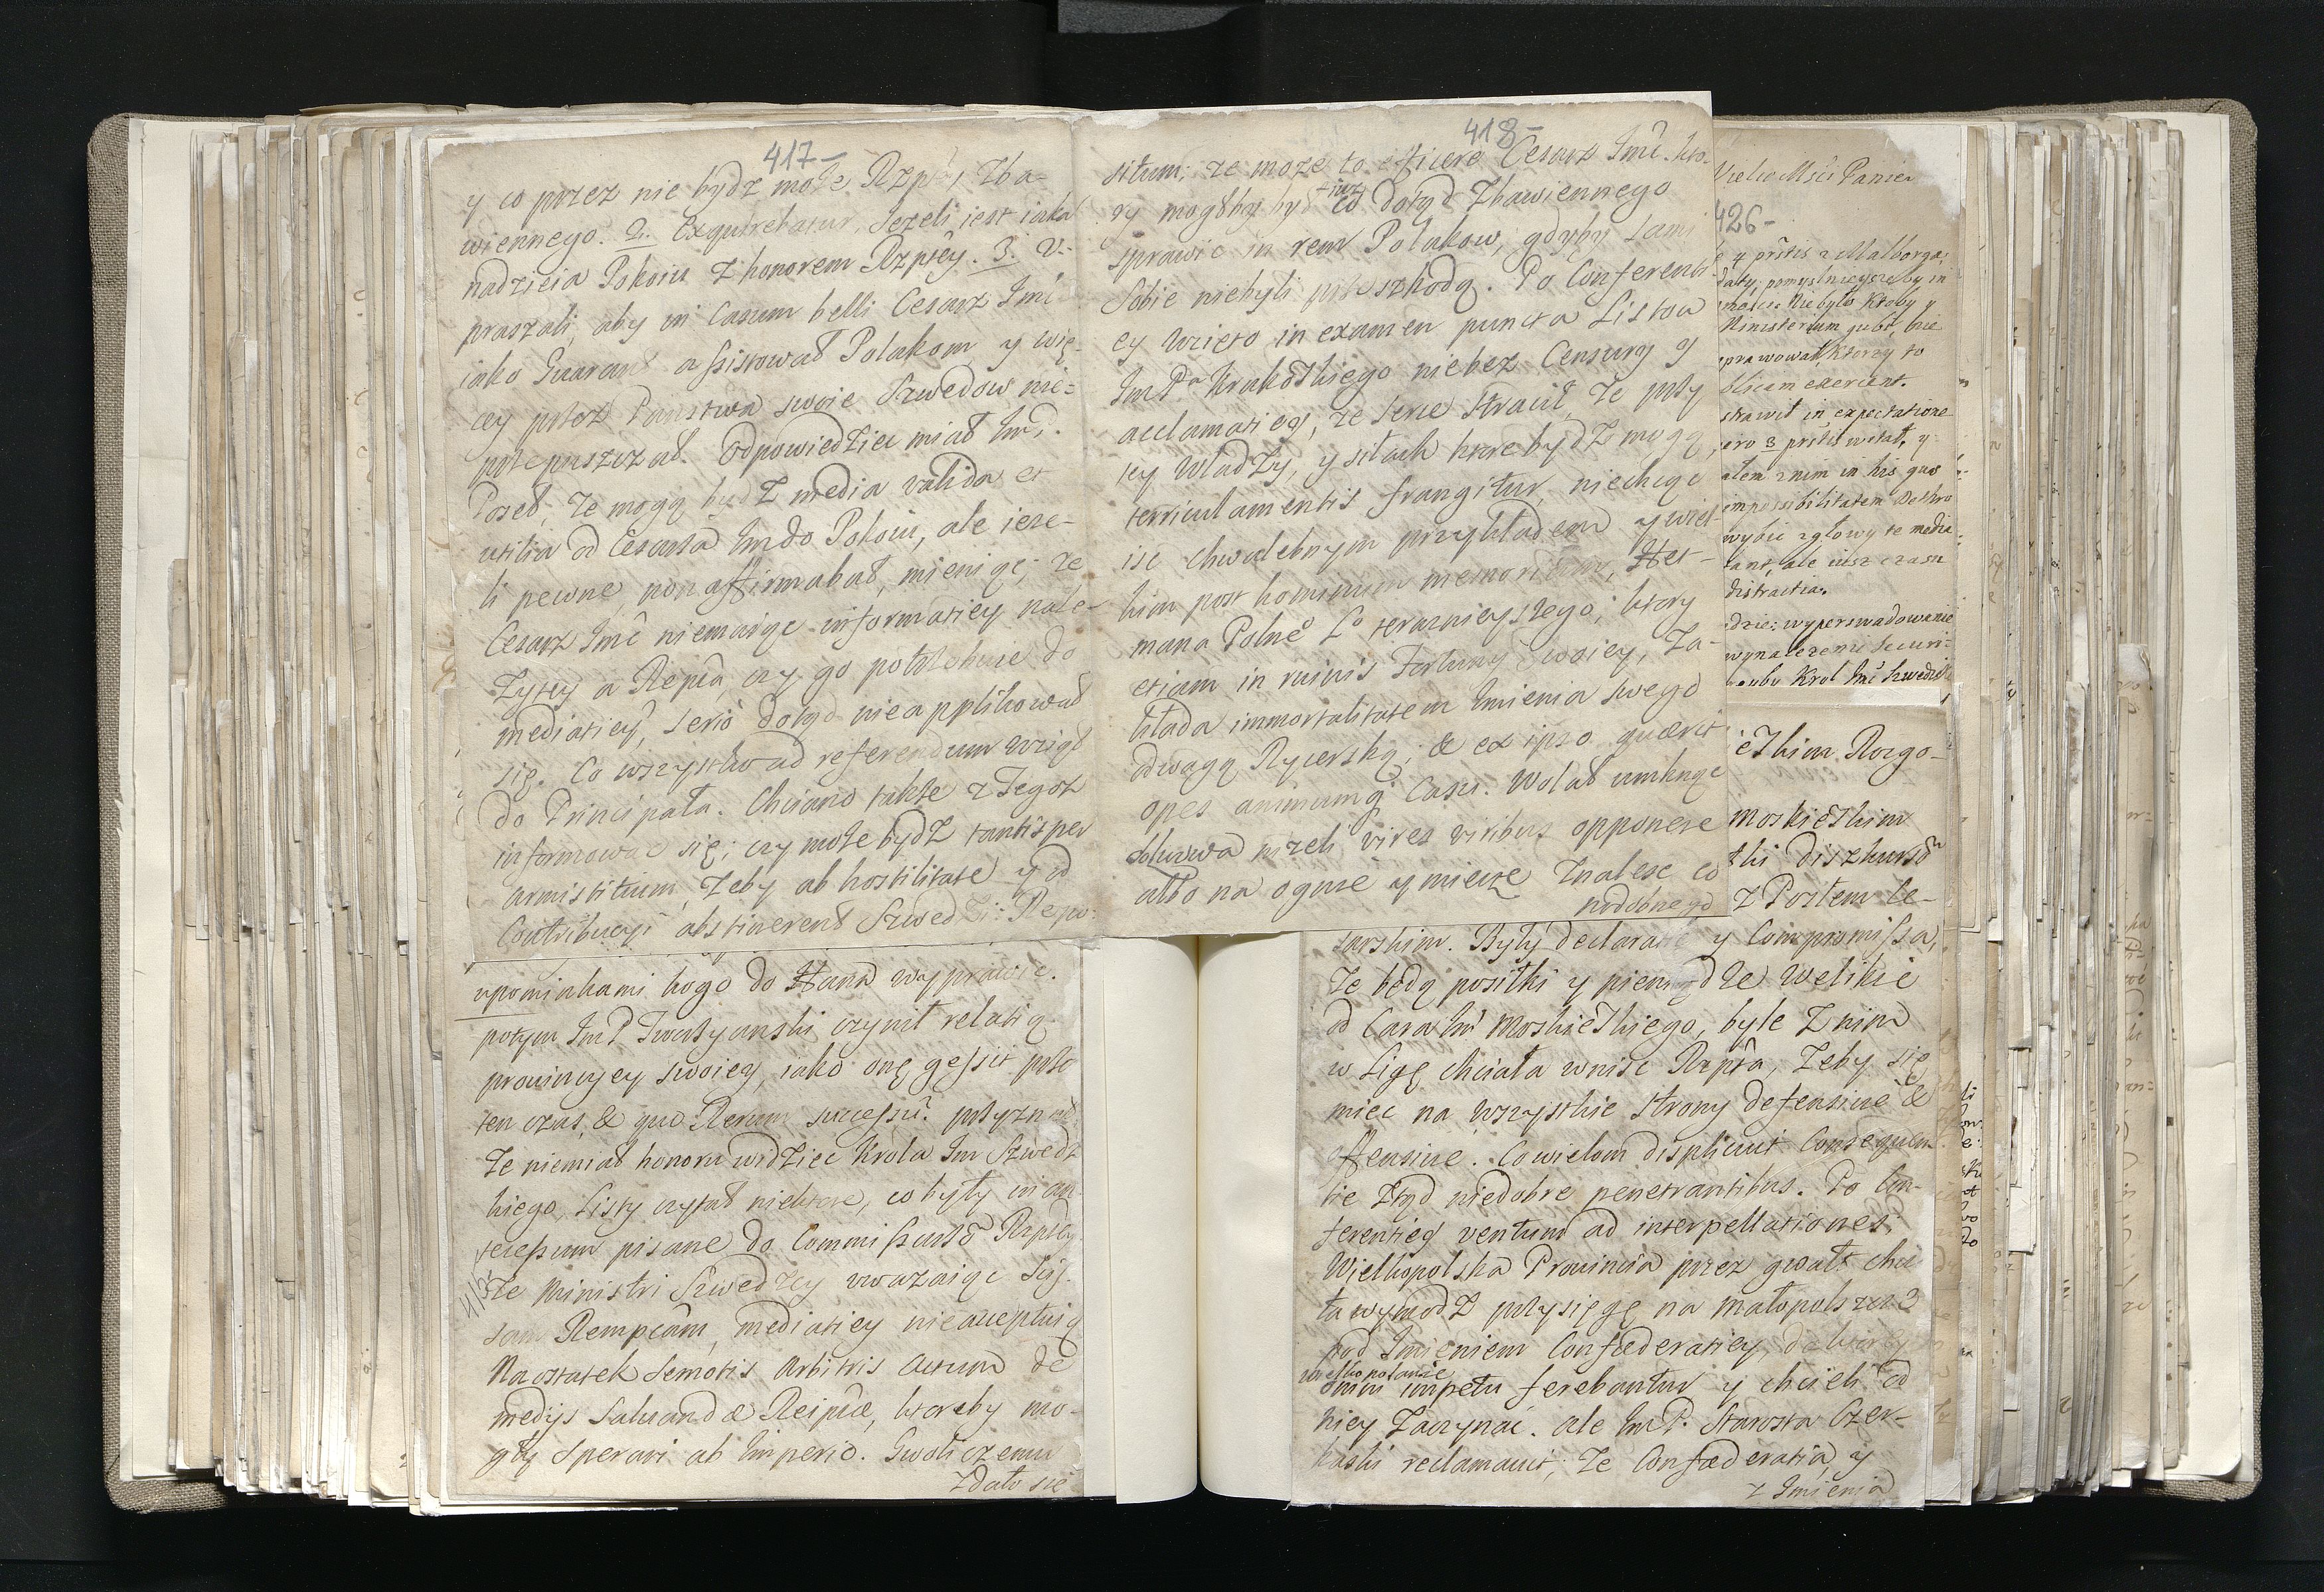 417-
y co przez nie bydz może Rzpta, Zba-
wiennego. 2. Exquirebatur, Jezeli iest iaka
nadzieia Pokoiu z honorem Rzptey. 3. V-
praszali, aby in Casum belli Cesarz Jmć
iako Guarant assistował Polakom, y wię-
cy przez Państwa swoie Szwedow nie-
przepuszczał. Odpowiedziec miał Jmć.
Poseł, że mogą bydz media valida et
utilia od Cesarza Jm do Pokoiu, ale ieze-
li pewne, non affirmabat, mieniąc, ze
Cesarz Jmć niemaiąc informatiey nale-
żytey a Repca, czy go potrzebuie do
mediatiey, serio dotąd nie applikował
się. Co wszystko ad referendum wziął
do Principała. Chciano także z Tegoż
informować się; czy może bydz tantisper
armistitium, żeby ab hostilitate y od
Contribucyi abstinerent Szwedzi: Repo-
418-
situm; ze moze to efficere Cesarz Jmć. kto-
ry mogłby był iuz co dotąd zbawiennego
sprawic in rem Polakow, gdyby sami
sobie niebyli przeszkodą. Po Conferenti-
ey wzięto in examen puncta Listow
Jm Pa Krakoskiego nie bez Censury y
acclamatiey, ze serce stracił, że przy
tey władzy, y siłach ktore bydz mogą,
terriculamentis frangitur, niechcąc
isc chwalebnym przykładem y wiel-
kim post hominum memoriam, Het-
mana Polneo Lo teraznieyszego, ktory
etiam in ruinis Fortuny swoiey, za-
kłada immortalitatem Jmienia swego
odwagą Rycerską, & ex ipso quærit
opes animumq Casu. Wolał umknąc
nizeli vires viribus opponere
albo na ogniu y mieczu znalesc co
podobnego
upominkami kogo do Hana wyprawic.
potym Jm P Twardyanski czynił relatią
prowincyey swoiey, iako onę gessit prze
ten czas, & quo Rerum successu. przyznał
że niemiał honoru widziec Krola Jm Szwedz
kiego, Listy czytał niektore, co były in an-
tecessum pisane do Commissarzo Rzptey
415-
że Ministri Szwedzcy uwazaiąc scis-
sam Rempcam, mediatiey nieacceptuią
Naostatek Semotis Arbitris actum de
medijs Salvandæ Reipcæ, ktoreby mo-
gły sperari ab Imperio. Gwoli czemu
zdało się
Wielce Mści Panie
426-
y prStis z Malborga;
daty, pomyslnieysze by in
nie było Kroby y
Ministerium gubi, nie
prawował, ktorzy to
blicam exercent.
strawił in expectatione
ero 3 pritis witał, y
atem z nim in his quæ
impossibilitatem
wybic z głowy te media
tant, ale iusz czasu
distractia.
dzie: wyperswadowanie
wynalezeni securi-
Krol Jmć Szwedzk
eskim Rozgo-
Moskieskim
ski diszkurso
z Posłem Ce-
sarskim. Były declaratie y Compromissa,
że będą posiłki y pieniądze wielkie
od Cara Jm Moskieskiego, byle z nim
w Ligę chciała wnisc Rzpta, żeby się
miec na wszystkie strony defensive &
offensive. Co wielom displicuit Consequen-
tie ztąd niedobre penetrantibus. Po Con-
ferentiey ventum ad interpellationes.
Wielkopolska Prowincia przez gwałt chcia
ła wymodz przysięgę na Małopolszcze
pod Jmieniem Confæderatiey, do ktorey
Wielkopolanie
omni impetu ferebantur y chcieli od
niey zaczynac. ale Jm P. Starosta Czer-
kaski reclamavit, że Confæderatia y
z Jmienia